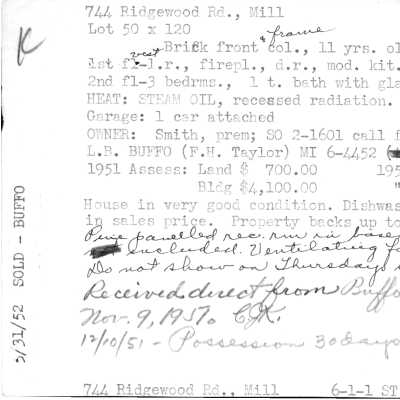 744 Ridgewood Rd., Mill
Lot 50 x 120
& frame
Brick front col., 11 yrs. ol
vest
1st fl-l.r., firepl., d.r., mod. kit.
2nd fl-3 bedrms., 1 t. bath with gla
HEAT: STEAM OIL, recessed radiation.
Garage: 1 car attached
OWNER: Smith, prem; SO 2-1601 call f
L.B. BUFFO (F.H. Taylor) MI 6-4452
1951 Assess: Land $ 700.00 195
Bldg $4,100.00 "
House in very good condition. Dishwas
in sales price. Property backs up to
Pine panelled rec. rm in base
included. Ventilating fa
Do not show on Thursdays
Received direct from Buffo
Nov. 9, 1951. C.K.
12/10/51 - Possession 30 days
744 Ridgewood Rd., Mill 6-1-1 ST
K
/31/52 SOLD - BUFFO